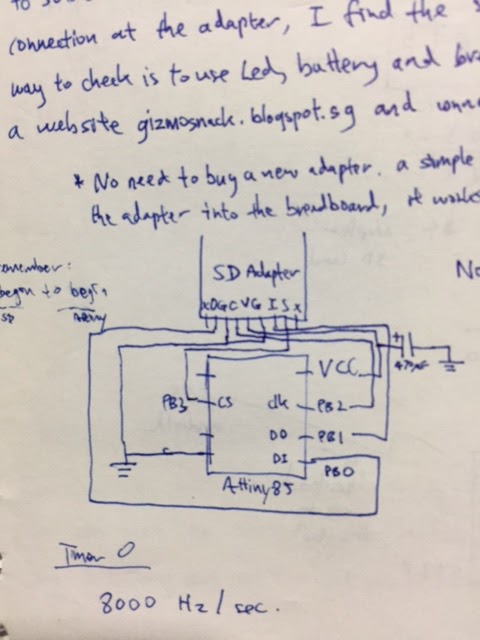 connection at the adapter, I find the
way to check is to use Led, battery and
a website gizmosnack.blogspot.sg and
* No need to buy a new adapter. a simple
the adapter into the breadboard, it works
remember:
begin to begin
SD
SD Adapter
No
x D G C V G I S x
+
470µF
VCC
PB3
CS
clk
PB2
DO
PB1
DI
PB0
Attiny85
Timer 0
8000 Hz/sec.